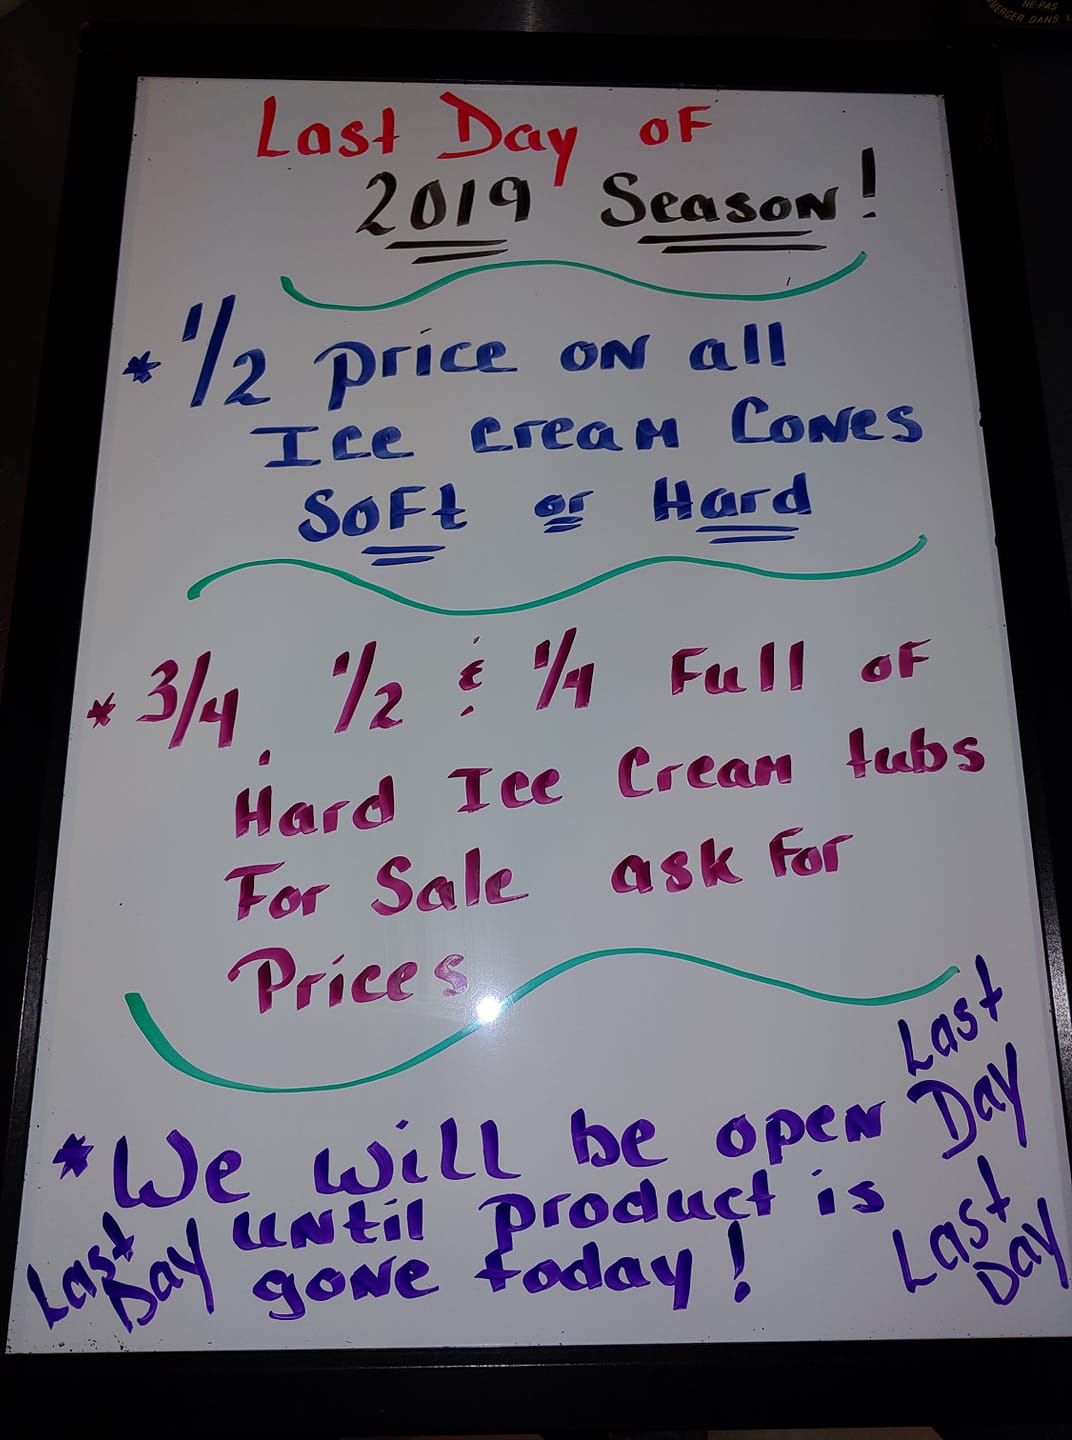 NE PAS
MMERGER DANS L
Last Day of
2019 Season!
* 1/2 price on all
Ice cream Cones
Soft or Hard
* 3/4, 1/2 & 1/4 Full of
Hard Ice Cream tubs
For Sale ask For
Prices
* We will be open
until product is
gone today!
Last
Day
Last
Day
Last
Day